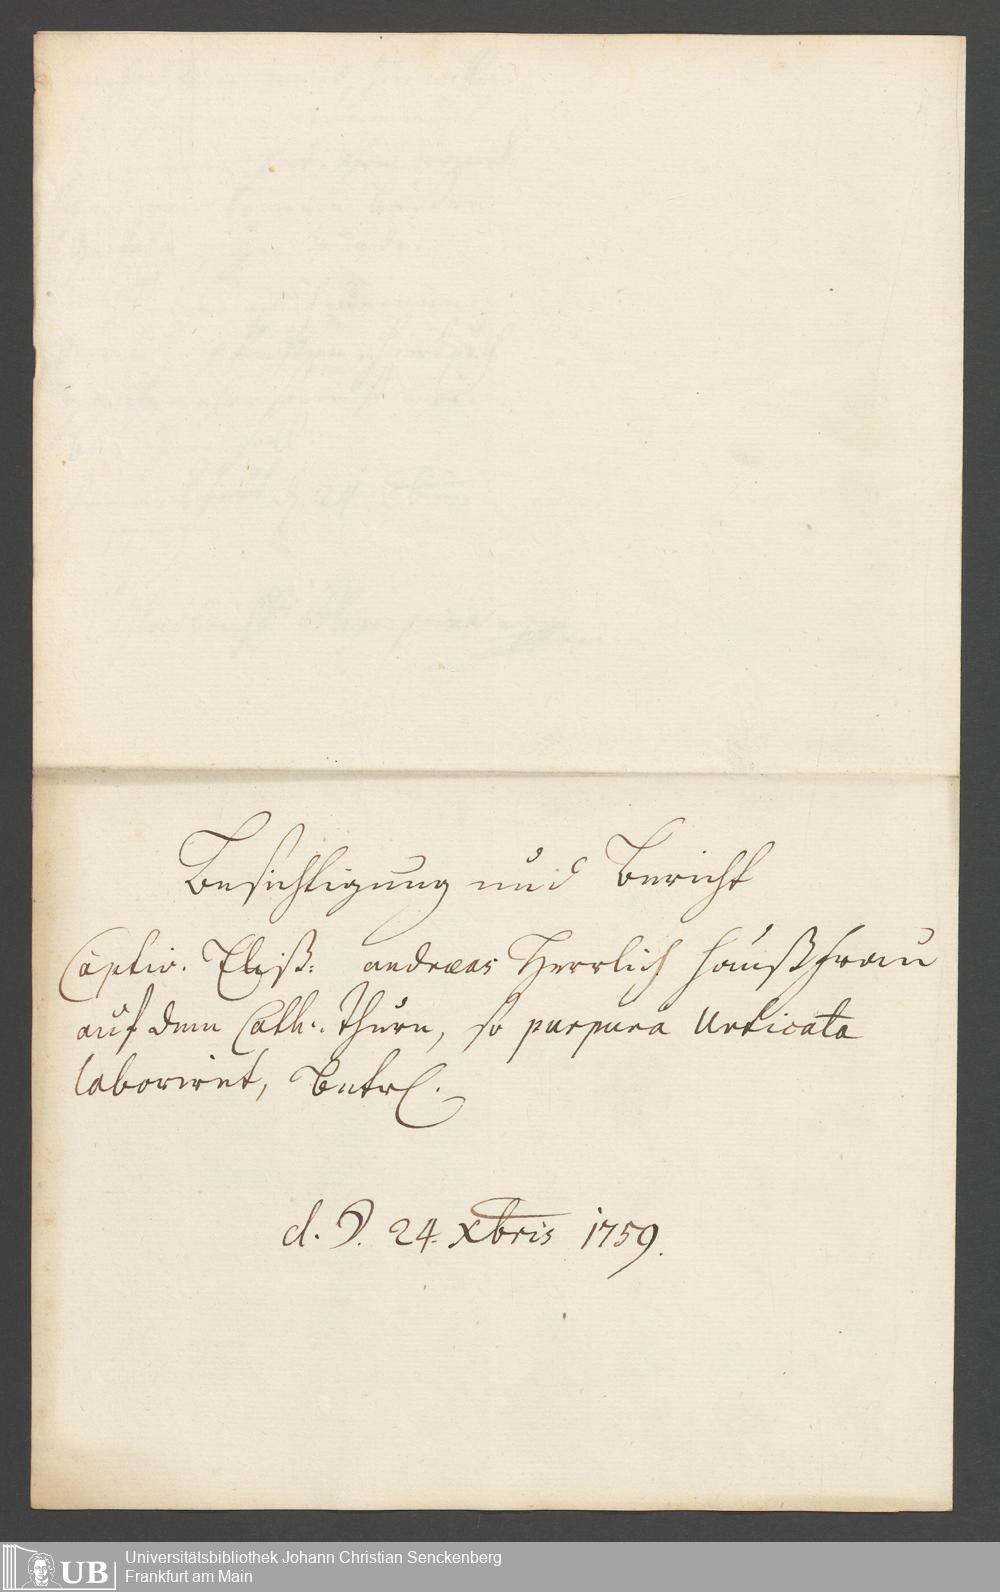 Besichtigung und Bericht
Captiv. Eliß: andreas Herrlich haußfrau
auf dem Cath: thurn, so purpura Urticata
laboriret, Betrl.
d. 24. Xbris 1759.
UB Universitätsbibliothek Johann Christian Senckenberg
Frankfurt am Main